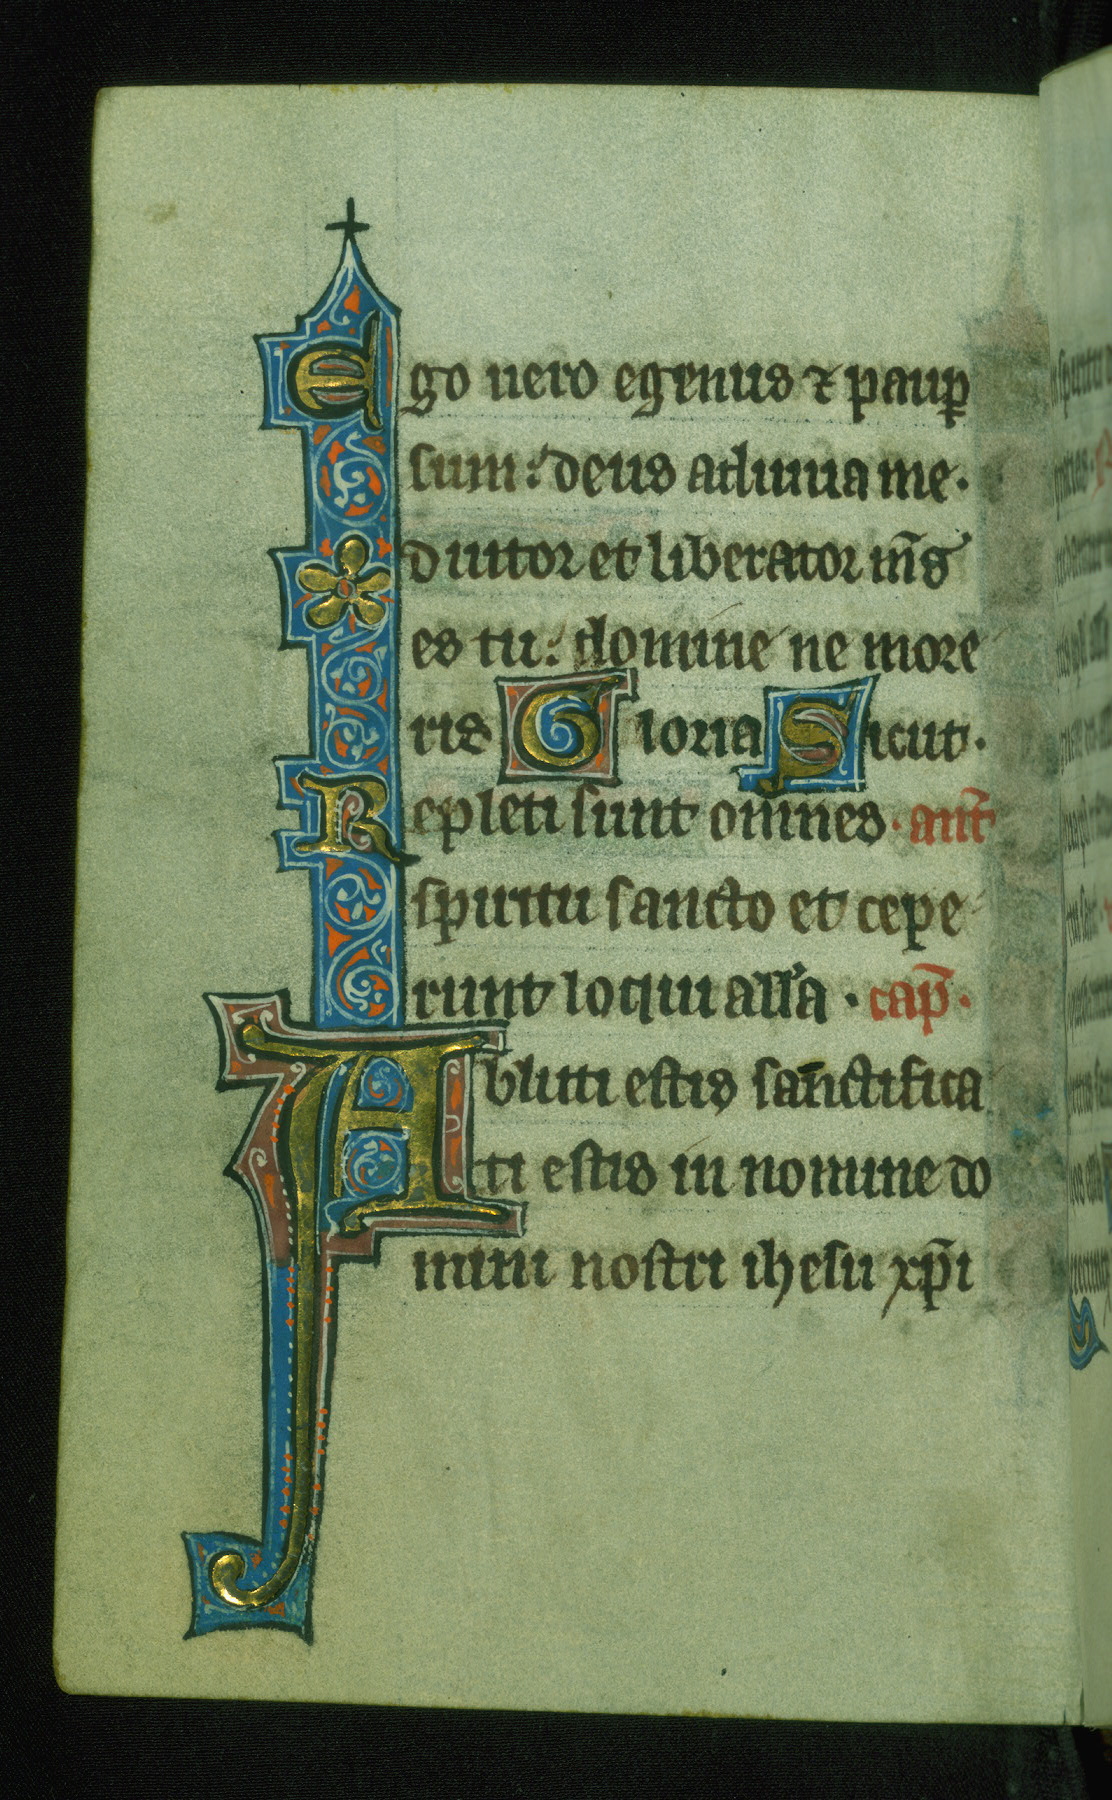 Ego uero egenus ⁊ paup̲
sum: deus adiuua me.
diutor et liberator m̅s
es tu: domine ne more
ris Gloria Sicut.
Repleti sunt omnes. ant̅
spiritu sancto et cepe
runt loqui all'a. cap̅.
Abluti estis sanctifica
ti estis in nomine do
mini nostri ihesu xp̅i